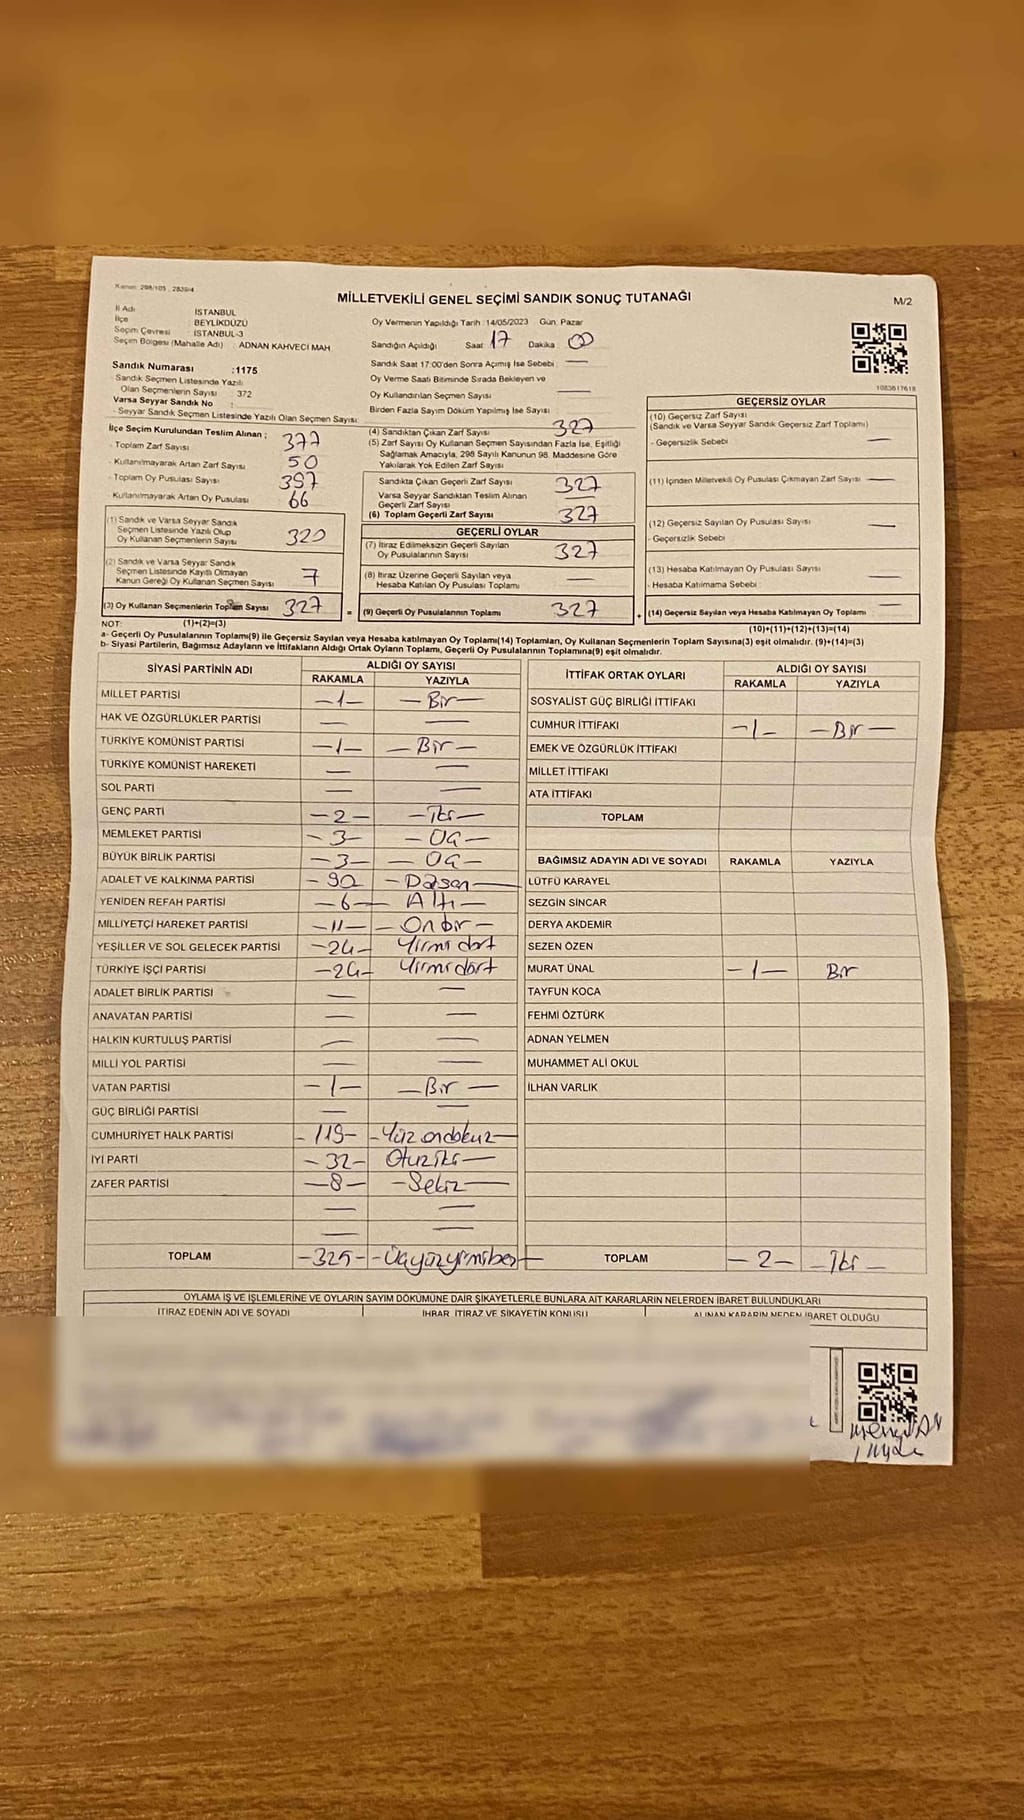 Kanun: 298/105 , 2839/4
MİLLETVEKİLİ GENEL SEÇİMİ SANDIK SONUÇ TUTANAĞI
M/2
İl Adı : İSTANBUL
İlçe : BEYLİKDÜZÜ
Seçim Çevresi : İSTANBUL-3
Seçim Bölgesi (Mahalle Adı) : ADNAN KAHVECİ MAH.
Oy Vermenin Yapıldığı Tarih :14/05/2023 Gün: Pazar
Sandığın Açıldığı Saat 17 Dakika 00
Sandık Saat 17:00'den Sonra Açımış İse Sebebi —
Oy Verme Saati Bitiminde Sırada Bekleyen ve
Oy Kullandırılan Seçmen Sayısı —
Birden Fazla Sayım Döküm Yapılmış İse Sayısı —
1083617618
Sandık Numarası :1175
- Sandık Seçmen Listesinde Yazılı
Olan Seçmenlerin Sayısı : 372
Varsa Seyyar Sandık No :
- Seyyar Sandık Seçmen Listesinde Yazılı Olan Seçmen Sayısı:
İlçe Seçim Kurulundan Teslim Alınan ;
- Toplam Zarf Sayısı 377
- Kullanılmayarak Artan Zarf Sayısı 50
- Toplam Oy Pusulası Sayısı 397
- Kullanılmayarak Artan Oy Pusulası 66
(1) Sandık ve Varsa Seyyar Sandık
Seçmen Listesinde Yazılı Olup
Oy Kullanan Seçmenlerin Sayısı 320
(2) Sandık ve Varsa Seyyar Sandık
Seçmen Listesinde Kayıtlı Olmayan
Kanun Gereği Oy Kullanan Seçmen Sayısı 7
(3) Oy Kullanan Seçmenlerin Toplam Sayısı 327
(4) Sandıktan Çıkan Zarf Sayısı 327
(5) Zarf Sayısı Oy Kullanan Seçmen Sayısından Fazla İse, Eşitliği
Sağlamak Amacıyla, 298 Sayılı Kanunun 98. Maddesine Göre
Yakılarak Yok Edilen Zarf Sayısı
Sandıkta Çıkan Geçerli Zarf Sayısı 327
Varsa Seyyar Sandıktan Teslim Alınan
Geçerli Zarf Sayısı —
(6) Toplam Geçerli Zarf Sayısı 327
GEÇERLİ OYLAR
(7) İtiraz Edilmeksizin Geçerli Sayılan
Oy Pusulalarının Sayısı 327
(8) İtiraz Üzerine Geçerli Sayılan veya
Hesaba Katılan Oy Pusulası Toplamı —
= (9) Geçerli Oy Pusulalarının Toplamı 327
GEÇERSİZ OYLAR
(10) Geçersiz Zarf Sayısı
(Sandık ve Varsa Seyyar Sandık Geçersiz Zarf Toplamı)
- Geçersizlik Sebebi —
(11) İçinden Milletvekili Oy Pusulası Çıkmayan Zarf Sayısı —
(12) Geçersiz Sayılan Oy Pusulası Sayısı —
- Geçersizlik Sebebi
(13) Hesaba Katılmayan Oy Pusulası Sayısı —
- Hesaba Katılmama Sebebi :
+ (14) Geçersiz Sayılan veya Hesaba Katılmayan Oy Toplamı —
NOT: (1)+(2)=(3) (10)+(11)+(12)+(13)=(14)
a- Geçerli Oy Pusulalarının Toplamı(9) ile Geçersiz Sayılan veya Hesaba katılmayan Oy Toplamı(14) Toplamları, Oy Kullanan Seçmenlerin Toplam Sayısına(3) eşit olmalıdır. (9)+(14)=(3)
b- Siyasi Partilerin, Bağımsız Adayların ve İttifakların Aldığı Ortak Oyların Toplamı, Geçerli Oy Pusulalarının Toplamına(9) eşit olmalıdır.
SİYASİ PARTİNİN ADI ALDIĞI OY SAYISI
RAKAMLA YAZIYLA
MİLLET PARTİSİ -1- - Bir -
HAK VE ÖZGÜRLÜKLER PARTİSİ — —
TÜRKİYE KOMÜNİST PARTİSİ -1- - Bir -
TÜRKİYE KOMÜNİST HAREKETİ — —
SOL PARTİ — —
GENÇ PARTİ -2- - İki -
MEMLEKET PARTİSİ -3- - Üç -
BÜYÜK BİRLİK PARTİSİ -3- - Üç -
ADALET VE KALKINMA PARTİSİ - 90 - Doksan -
YENİDEN REFAH PARTİSİ -6- - Altı -
MİLLİYETÇİ HAREKET PARTİSİ -11- - Onbir -
YEŞİLLER VE SOL GELECEK PARTİSİ -24- Yirmi dört
TÜRKİYE İŞÇİ PARTİSİ -24- Yirmi dört
ADALET BİRLİK PARTİSİ — —
ANAVATAN PARTİSİ — —
HALKIN KURTULUŞ PARTİSİ — —
MİLLİ YOL PARTİSİ — —
VATAN PARTİSİ -1- - Bir -
GÜÇ BİRLİĞİ PARTİSİ — —
CUMHURİYET HALK PARTİSİ - 119 - - Yüz ondokuz -
İYİ PARTİ -32- Otuziki -
ZAFER PARTİSİ -8- - Sekiz -
— —
— —
TOPLAM -325- - Üçyüzyirmibeş -
İTTİFAK ORTAK OYLARI ALDIĞI OY SAYISI
RAKAMLA YAZIYLA
SOSYALİST GÜÇ BİRLİĞİ İTTİFAKI
CUMHUR İTTİFAKI -1- - Bir -
EMEK VE ÖZGÜRLÜK İTTİFAKI
MİLLET İTTİFAKI
ATA İTTİFAKI
TOPLAM
BAĞIMSIZ ADAYIN ADI VE SOYADI RAKAMLA YAZIYLA
LÜTFÜ KARAYEL
SEZGİN SİNCAR
DERYA AKDEMİR
SEZEN ÖZEN
MURAT ÜNAL -1- Bir
TAYFUN KOCA
FEHMİ ÖZTÜRK
ADNAN YELMEN
MUHAMMET ALİ OKUL
İLHAN VARLIK
TOPLAM -2- - İki -
OYLAMA İŞ VE İŞLEMLERİNE VE OYLARIN SAYIM DÖKÜMÜNE DAİR ŞİKAYETLERLE BUNLARA AİT KARARLARIN NELERDEN İBARET BULUNDUKLARI
İTİRAZ EDENİN ADI VE SOYADI İHBAR, İTİRAZ VE ŞİKAYETİN KONUSU ALINAN KARARIN NEDEN İBARET OLDUĞU